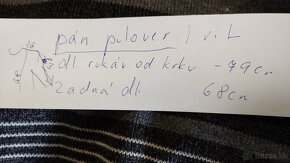 pán. pulover / v. L
dl rukáv od krku - 79cm
Zadná dl 68cm